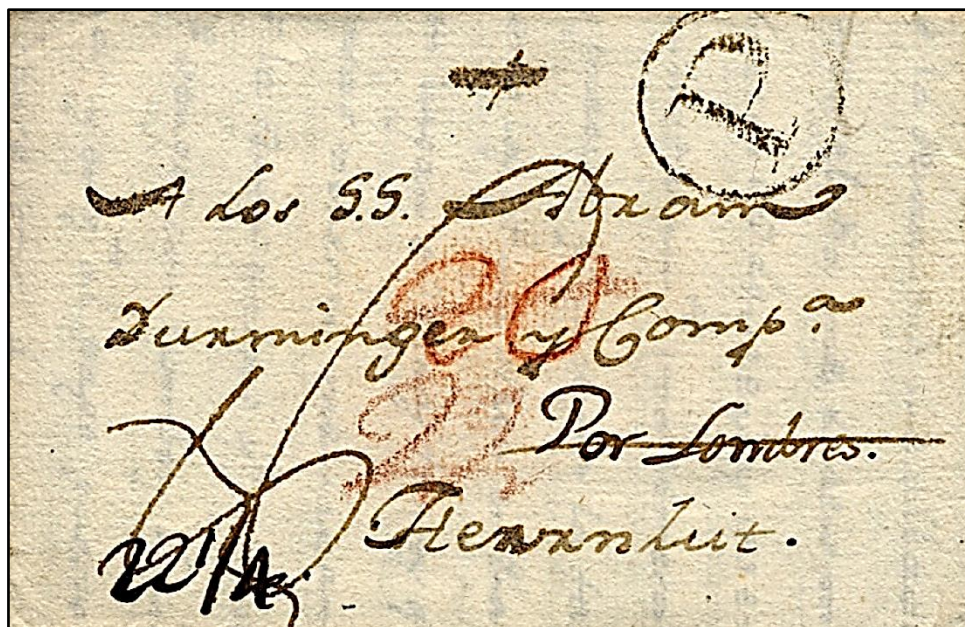 P
A Los S.S. Abram
Durninger y Comp.ª
20
22
Por Lombres.
Herrnhut.
22 1/4